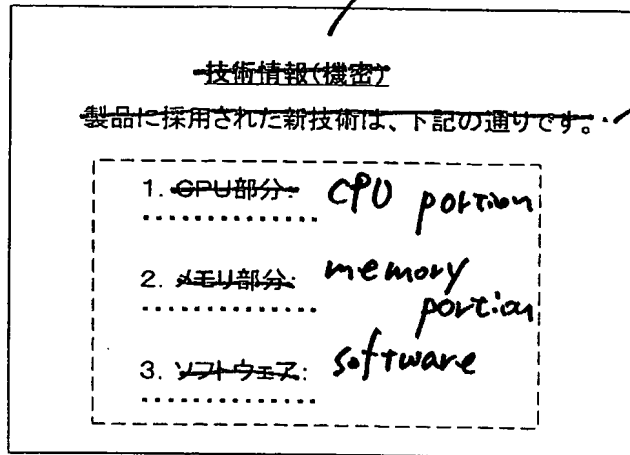 技術情報(機密)
製品に採用された新技術は、下記の通りです。
1. CPU部分: CPU portion
2. メモリ部分: memory portion
3. ソフトウェア: software